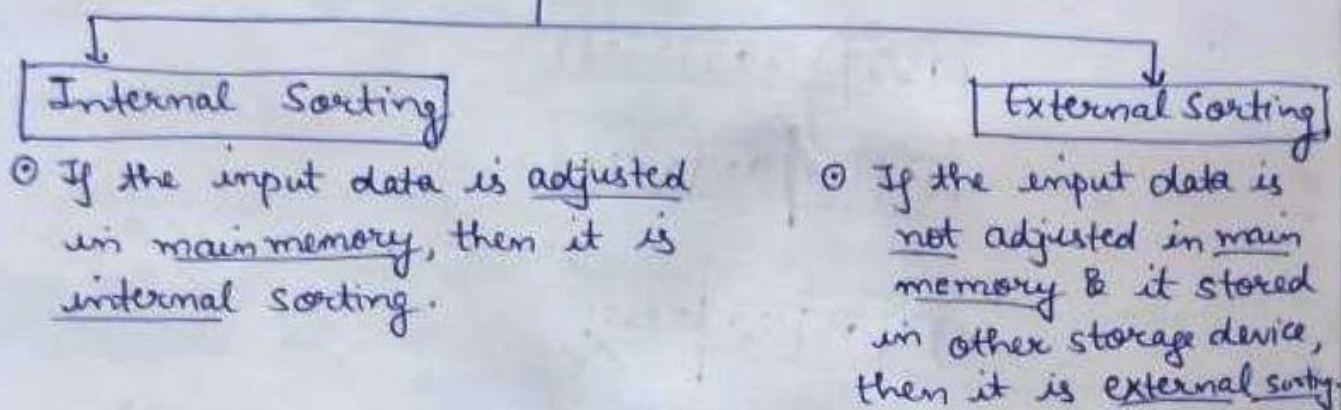 Internal Sorting
⊙ If the input data is adjusted
in main memory, then it is
internal sorting.
External Sorting
⊙ If the input data is
not adjusted in main
memory & it stored
in other storage device,
then it is external sorting.